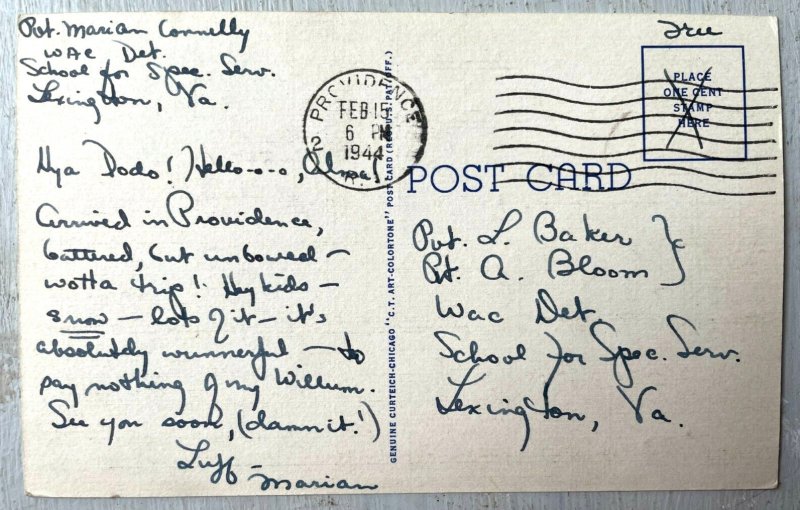 Pvt. Marian Connelly
WAC Det.
School for Spec. Serv.
Lexington, Va.
Hya Dodo! Hello---o, Alma!
Arrived in Providence,
battered, but unbowed –
wotta trip! Hey kids –
snow – lots of it – it's
absolutely wunnerful – to
say nothing of my Willum.
See you soon, (damn it!)
Luff –
Marian
GENUINE CURTEICH-CHICAGO "C.T. ART-COLORTONE" POST CARD (REG. U.S. PAT. OFF.)
PROVIDENCE
FEB 15
6 PM
1944
R.I.
2
Free
PLACE
ONE CENT
STAMP
HERE
POST CARD
Pvt. L. Baker
Pvt. A. Bloom
Wac Det.
School for Spec. Serv.
Lexington, Va.